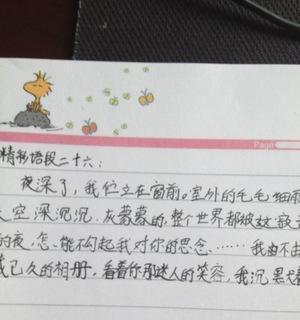 Page
精彩语段二十六:
夜深了,我伫立在窗前。室外的毛毛细雨
天空深沉沉.灰蒙蒙的,整个世界都被寂
的夜,怎能不勾起我对你的思念……我由不由
藏已久的相册,看着你那迷人的笑容,我沉默